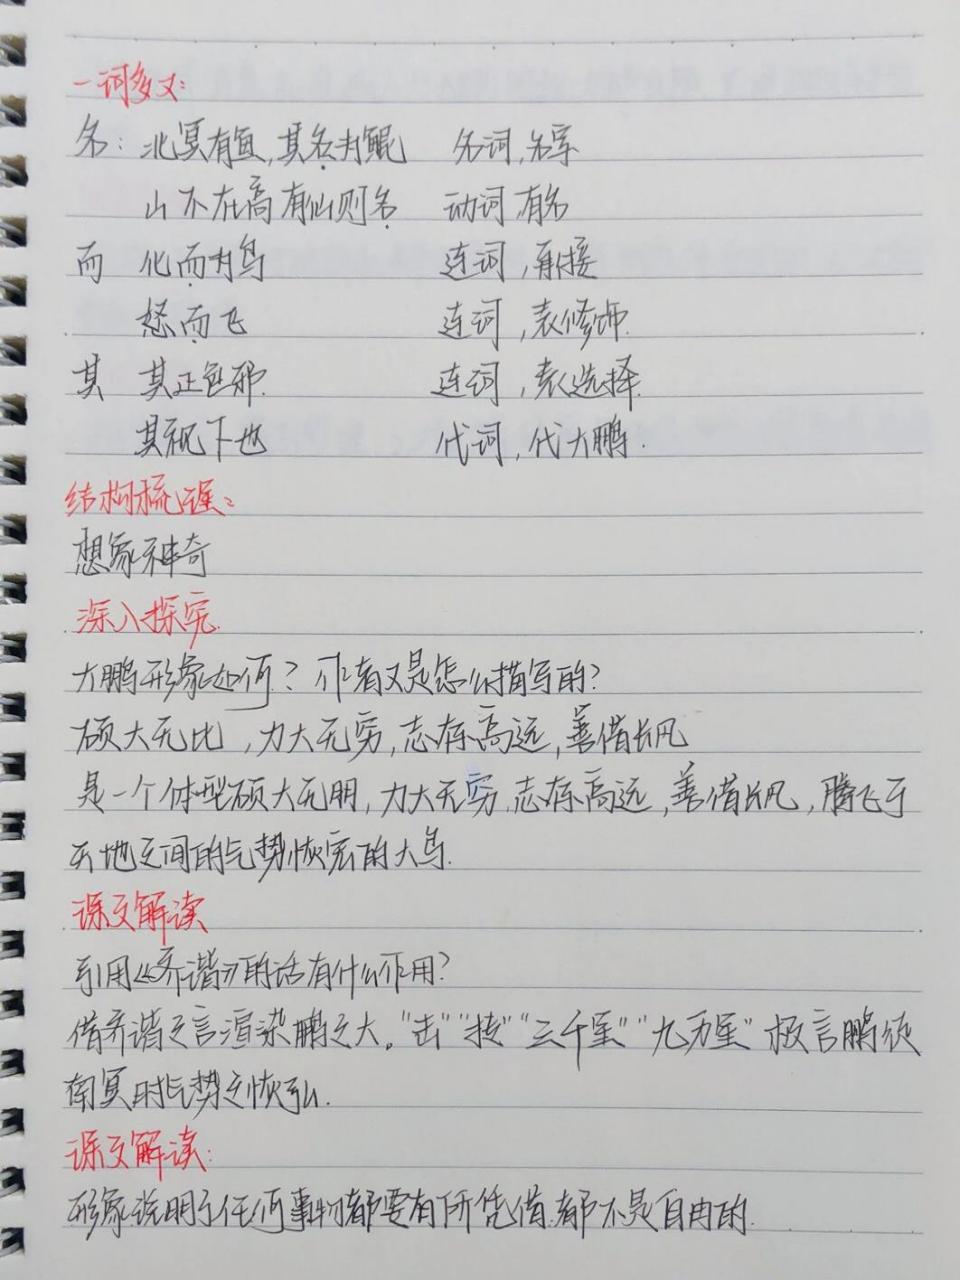 一词多义:
名: 北冥有鱼,其名为鲲 名词,名字
山不在高有仙则名 动词 有名
而 化而为鸟 连词,承接
怒而飞 连词,表修饰.
其 其正色邪. 连词,表选择.
其视下也 代词,代大鹏.
结构梳理:
想象神奇
深入探究.
大鹏形象如何?作者又是怎么描写的?
硕大无比,力大无穷,志存高远,善借长风
是一个体型硕大无朋,力大无穷,志存高远,善借长风,腾飞于
天地之间的气势恢宏的大鸟.
课文解读
引用《齐谐》的话有什么作用?
借齐谐之言渲染鹏之大。"击""抟""三千里""九万里"极言鹏徙
南冥时气势之恢弘.
课文解读:
形象说明了任何事物都要有所凭借.都不是自由的.